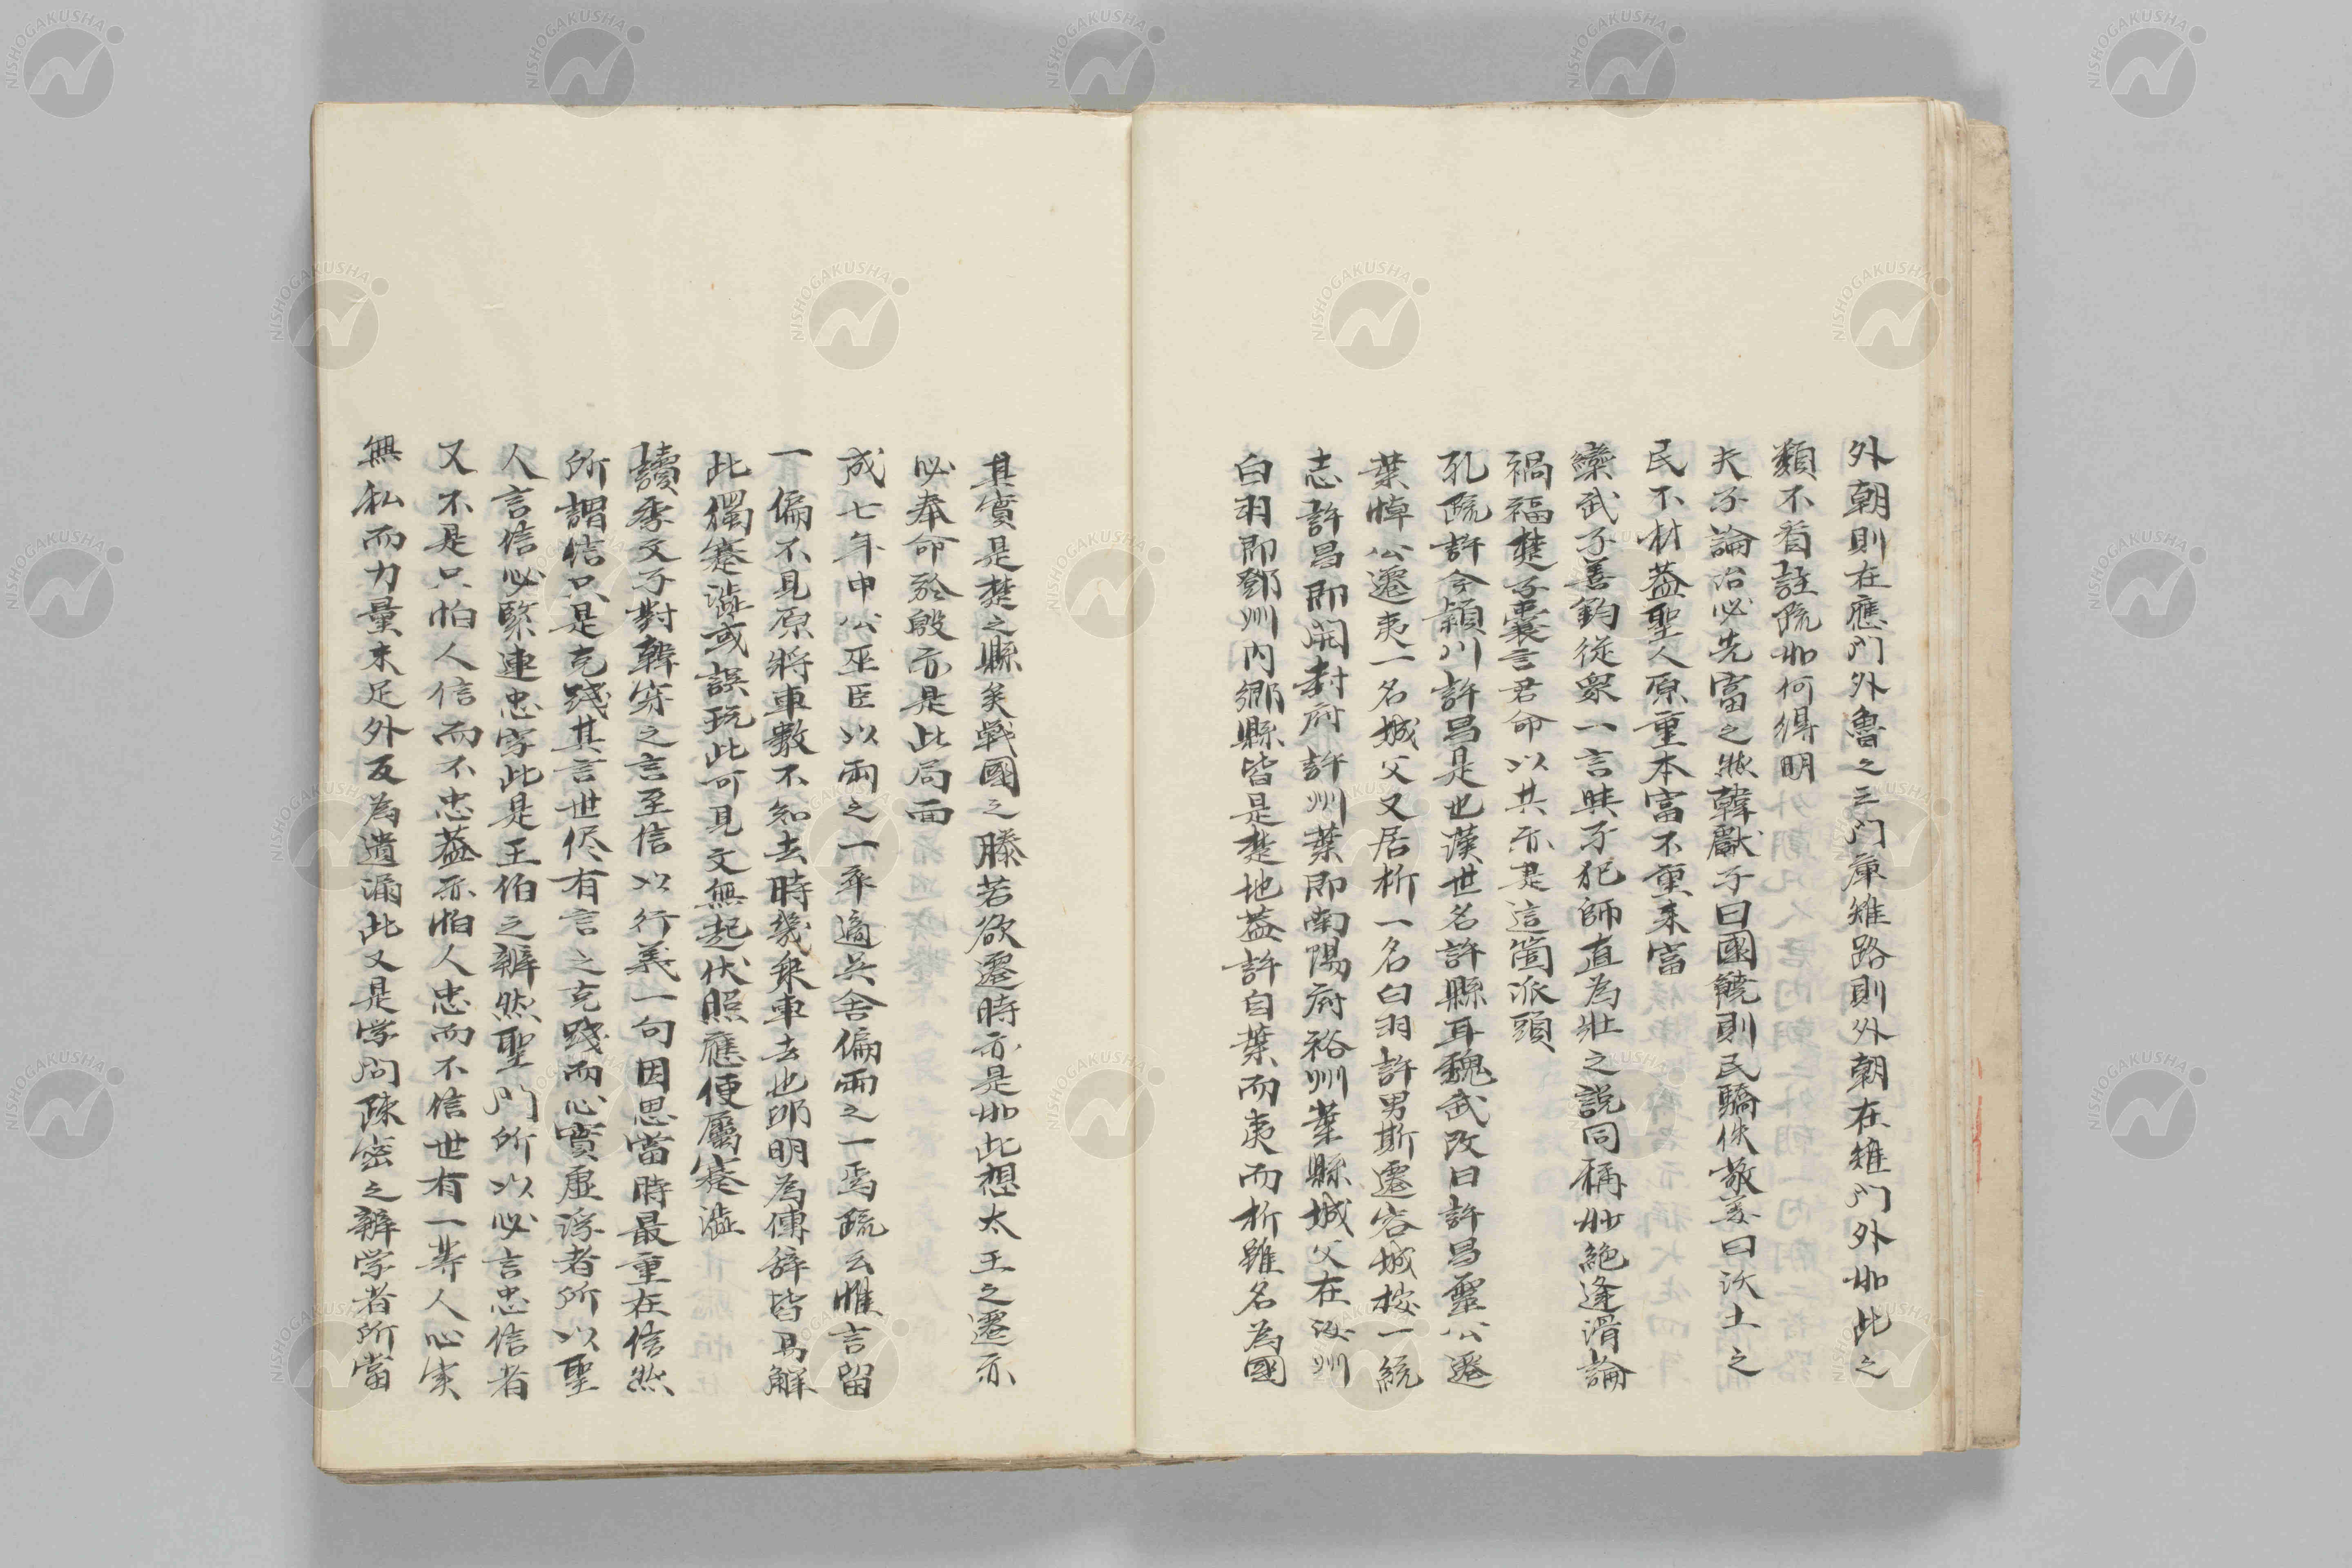 外朝則在應門外魯之三門庫雉路則外朝在雉門外如此之
類不看註疏如何得明
夫子論治必先富之然韓獻子曰國饒則民驕佚敬姜曰沃土之
民不材蓋聖人原重本富不重末富
欒武子善鈞從眾一言與子犯師直為壯之說同稱妙絕逢滑論
禍福楚子囊言君命以共亦是這箇派頭
孔疏許今頴川許昌是也漢世名許縣耳魏武改曰許昌靈公遷
葉悼公遷夷一名城父又居析一名白羽許男斯遷容城按一統
志許昌即開封府許州葉即南陽府裕州葉縣城父在汝州
白羽即鄧州內鄉縣皆是楚地蓋許自葉而夷而析雖名為國
其實是楚之縣矣戰國之滕若欲遷時亦是如此想太王之遷亦
必奉命於殷亦是此局面
成七年申公巫臣以兩之一卒適吳舍偏兩之一焉疏云惟言留
一偏不見原將車數不知去時幾乘車去也邱明為傳辭皆易解
此獨蹇澁或誤玩此可見文無起伏照應便屬蹇澁
讀季文子對韓穿之言至信以行義一句因思當時最重在信然
所謂信只是克踐其言世侭有言之克踐而心實虛浮者所以聖
人言信必緊連忠字此是王伯之辨然聖門所以必言忠信者
又不是只怕人信而不忠蓋亦怕人忠而不信世有一等人心実
無私而力量未足外反為遺漏此又是学問疎密之辨学者所當